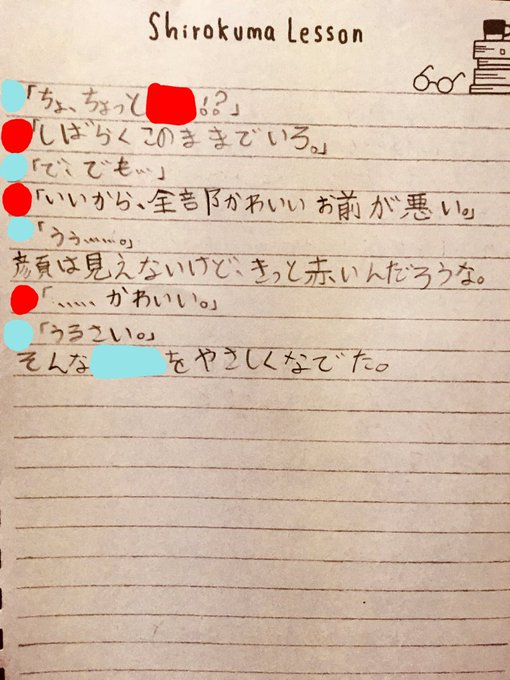 Shirokuma Lesson
「ちょ、ちょっと!!?」
「しばらくこのままでいろ。」
「で、でも…」
「いいから、全部かわいいお前が悪い。」
「うぅ……。」
顔は見えないけど、きっと赤いんだろうな。
「……かわいい。」
「うるさい。」
そんなをやさしくなでた。